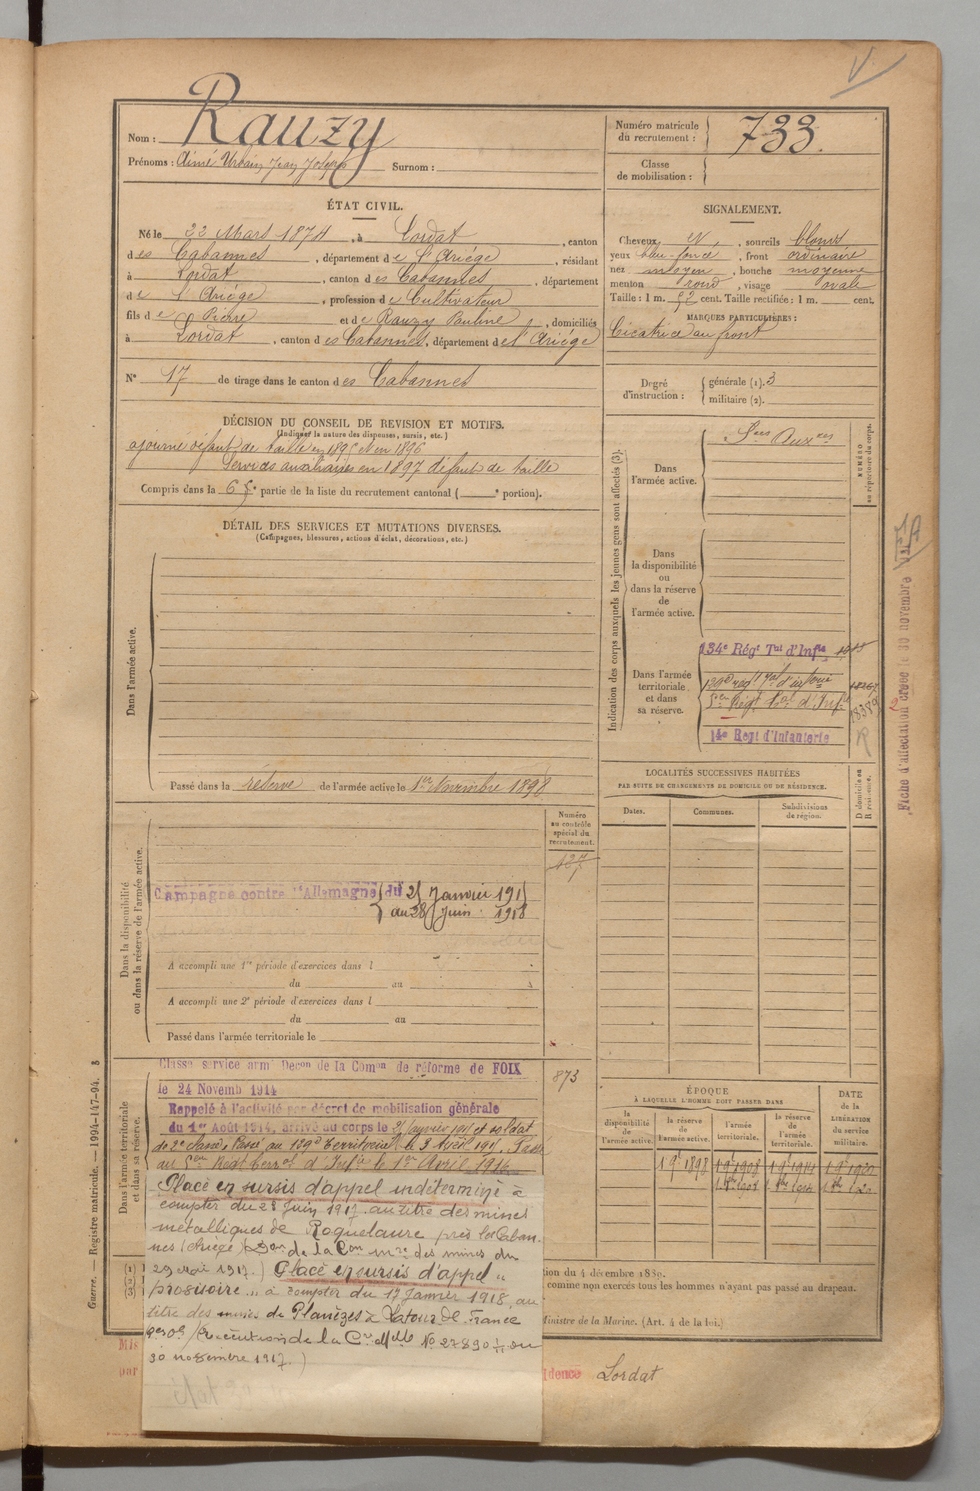 Nom : Rauzy
Prénoms : Aimé Urbain Jean Joseph Surnom :
Numéro matricule du recrutement : 733.
Classe de mobilisation :
ÉTAT CIVIL.
Né le 22 Mars 1874, à Lordat, canton
des Cabannes, département de l'Ariége, résidant
à Lordat, canton des Cabannes, département
de l'Ariége, profession de Cultivateur
fils de Pierre et de Rauzy Pauline, domiciliés
à Lordat, canton des Cabannes, département de l'Ariége
N° 17 de tirage dans le canton des Cabannes
SIGNALEMENT.
Cheveux, sourcils blonds
yeux bleu foncé, front ordinaire
nez moyen, bouche moyenne
menton rond, visage ovale
Taille : 1 m. 52 cent. Taille rectifiée : 1 m. cent.
MARQUES PARTICULIÈRES :
Cicatrice au front
Degré d'instruction : générale (1). 3
militaire (2).
DÉCISION DU CONSEIL DE REVISION ET MOTIFS.
(Indiquer la nature des dispenses, sursis, etc.)
ajourné défaut de taille en 1895 et en 1896
Services auxiliaires en 1897 défaut de taille
Compris dans la 6e partie de la liste du recrutement cantonal ( e portion).
DÉTAIL DES SERVICES ET MUTATIONS DIVERSES.
(Campagnes, blessures, actions d'éclat, décorations, etc.)
Dans l'armée active.
Passé dans la réserve de l'armée active le 1er Novembre 1898
Indication des corps auxquels les jeunes gens sont affectés (3).
NUMÉRO au répertoire du corps.
Dans l'armée active.
Sces Auxres
Dans la disponibilité ou dans la réserve de l'armée active.
Dans l'armée territoriale et dans sa réserve.
134e Régt Tal d'Infie
14e Regt d'Infanterie
Fiche d'affectation créée le 30 novembre
LOCALITÉS SUCCESSIVES HABITÉES
PAR SUITE DE CHANGEMENTS DE DOMICILE OU DE RÉSIDENCE.
Dates. Communes. Subdivisions de région. D domicile ou R résidence.
Dans la disponibilité ou dans la réserve de l'armée active.
Numéro au contrôle spécial du recrutement.
Campagne contre l'Allemagne du 25 Janvier 1915
au 28 Juin 1918
A accompli une 1re période d'exercices dans l
du au
A accompli une 2e période d'exercices dans l
du au
Passé dans l'armée territoriale le
Dans l'armée territoriale et dans sa réserve.
873
Classé service armé Decon de la Comon de réforme de FOIX
le 24 Novemb 1914
Rappelé à l'activité par décret de mobilisation générale
du 1er Août 1914, arrivé au corps le 25 Janvier 1915 et soldat
de 2e classe. Passé au 139e Territorial le 3 Avril 1915. Passé
au Regt Terral d'Infie le 1er Avril 1916
Placé en sursis d'appel indéterminé à
compter du 28 Juin 1917 au titre des mines
métalliques de Roquelaure près les Caban-
nes (Ariège) Don de la Con mre des mines du
29 mai 1917.) Placé en sursis d'appel "
provisoire " à compter du 17 Janvier 1918, au
titre des mines de Planèzes à Latour de France
(Exécution de la Cre Mlle N° 27890 du
30 novembre 1917.)
ÉPOQUE
À LAQUELLE L'HOMME DOIT PASSER DANS
la disponibilité de l'armée active. la réserve de l'armée active. l'armée territoriale. la réserve de l'armée territoriale.
DATE de la LIBÉRATION du service militaire.
1 9e 1898 1 9e 1908 1 9e 1914 1 9e 1920
tion du 4 décembre 1889.
comme non exercés tous les hommes n'ayant pas passé au drapeau.
Ministre de la Marine. (Art. 4 de la loi.)
(1)
(2)
(3)
par
idence Lordat
Guerre. — Registre matricule. — 1994-147-94.